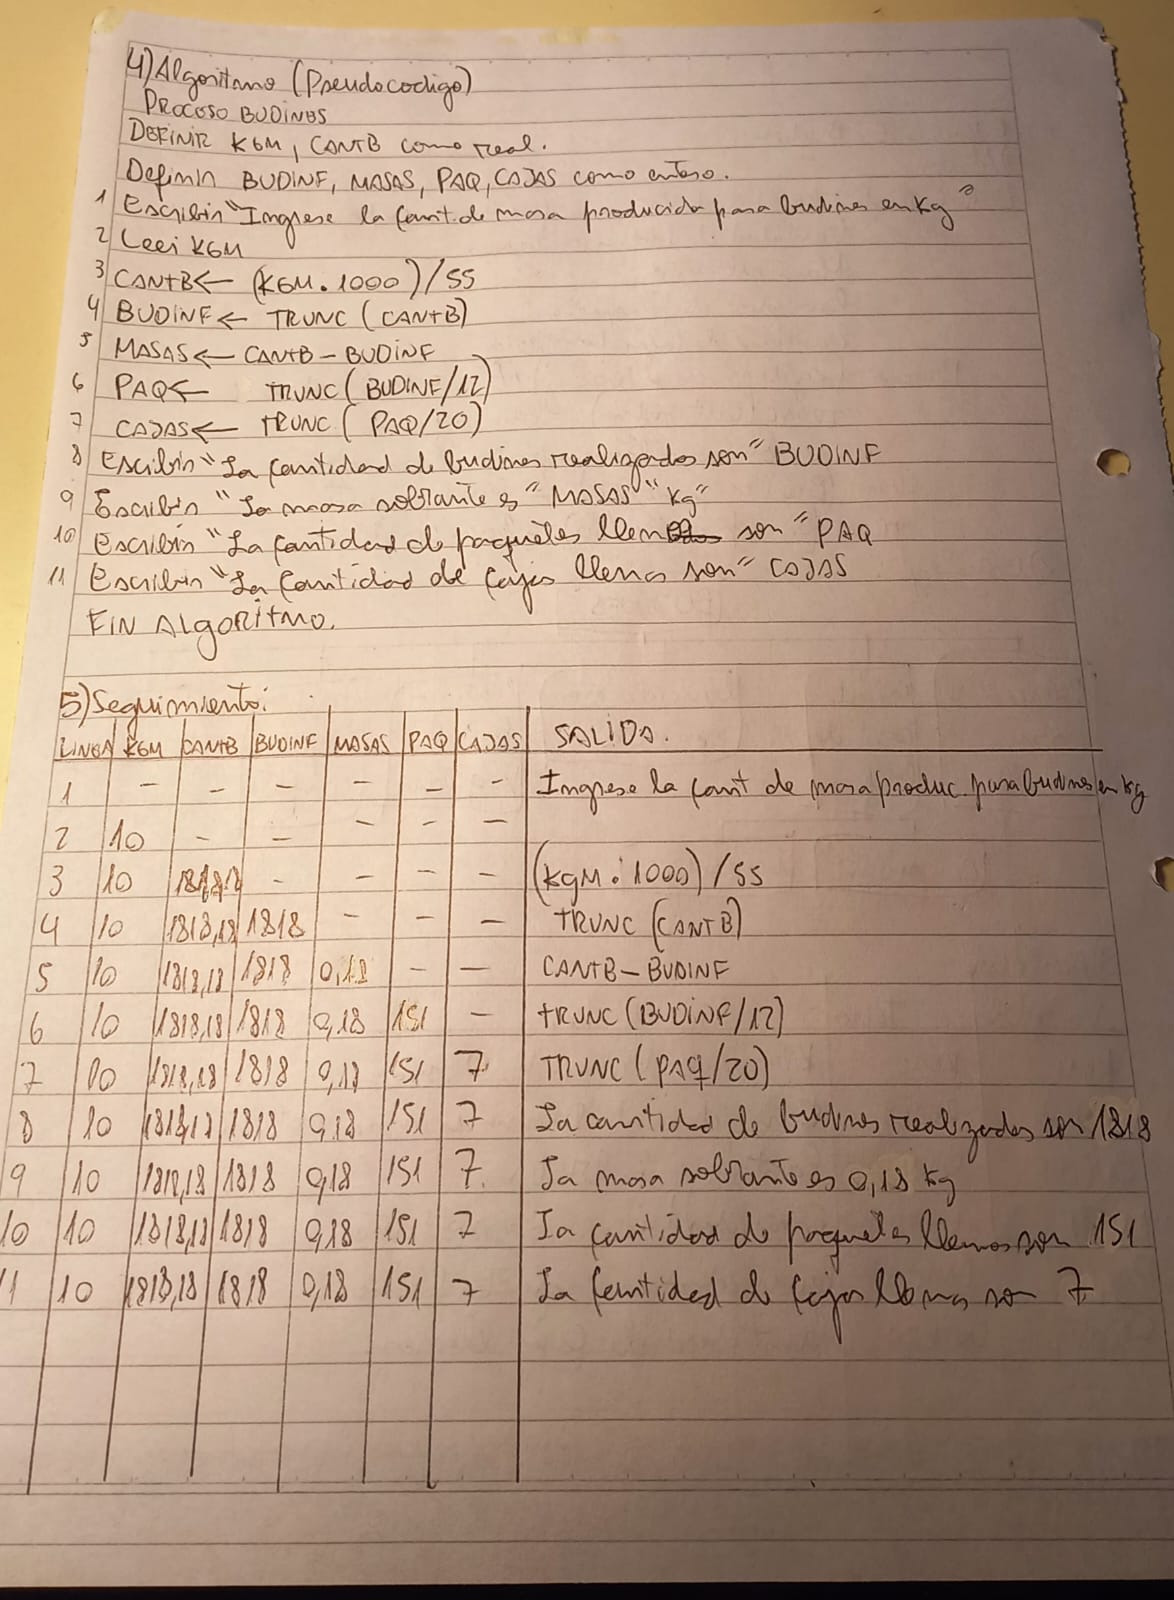 4) Algoritmo (Pseudocodigo)
PROCESO BUDINES
DEFINIR KGM, CANTB como real.
Definir BUDINF, MASAS, PAQ, CAJAS como entero.
1 Escribir "Ingrese la cant. de masa producida para budines en Kg"
2 Leer KGM
3 CANTB ← (KGM . 1000) / 55
4 BUDINF ← TRUNC (CANTB)
5 MASAS ← CANTB - BUDINF
6 PAQ ← TRUNC (BUDINF/12)
7 CAJAS ← TRUNC (PAQ/20)
8 Escribir "La cantidad de budines realizados son" BUDINF
9 Escribir "La masa sobrante es" MASAS "Kg"
10 Escribir "La cantidad de paquetes llenos son" PAQ
11 Escribir "La cantidad de cajas llenas son" CAJAS
FIN ALGORITMO.
5) Seguimiento:
LINEA KGM CANTB BUDINF MASAS PAQ CAJAS SALIDA.
1 - - - - - - Ingrese la cant de masa produc. para budines en kg
2 10 - - - - -
3 10 1818,18 - - - - (KGM . 1000) / 55
4 10 1818,18 1818 - - - TRUNC (CANTB)
5 10 1818,18 1818 0,18 - - CANTB - BUDINF
6 10 1818,18 1818 0,18 151 - TRUNC (BUDINF/12)
7 10 1818,18 1818 0,18 151 7 TRUNC (PAQ/20)
8 10 1818,18 1818 0,18 151 7 La cantidad de budines realizados son 1818
9 10 1818,18 1818 0,18 151 7. La masa sobrante es 0,18 Kg
10 10 1818,18 1818 0,18 151 7 La cantidad de paquetes llenos son 151
11 10 1818,18 1818 0,18 151 7 La cantidad de cajas llenas son 7